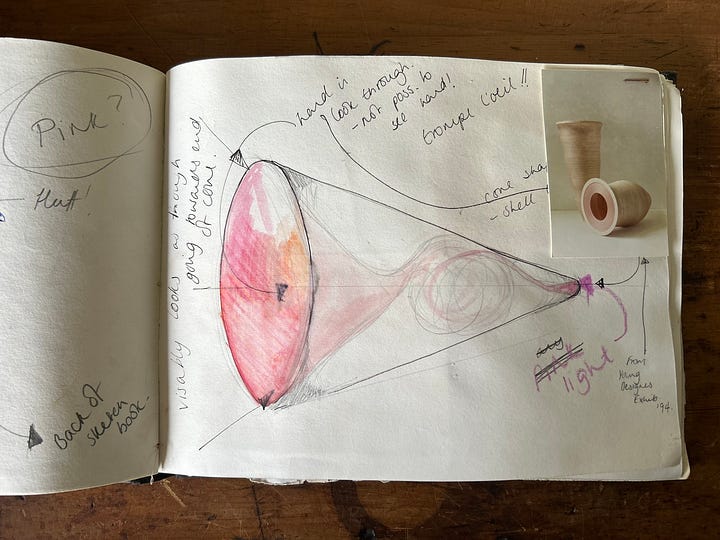 Pink?
Back of
sketch
book -
visually looks as though
going towards end
of cone.
look through.
- not poss. to
see hand!
trompe l'oeil!!
cone sha
- shell
light
from
Young
Designers
Exhib
'94.